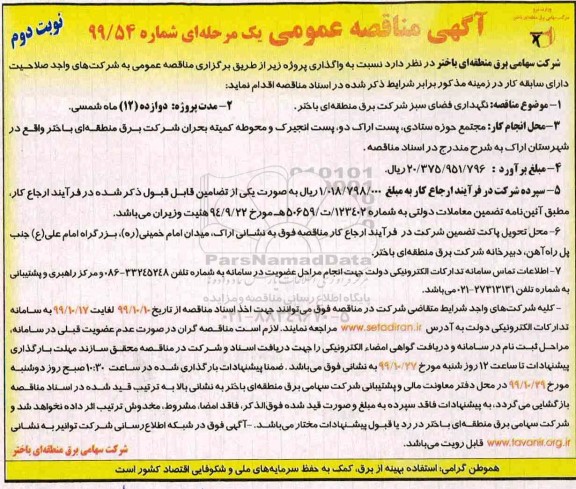 آگهی مناقصه عمومی یک مرحله‌ای شماره ۹۹/۵۴
نوبت دوم
شرکت سهامی برق منطقه‌ای باختر در نظر دارد نسبت به واگذاری پروژه زیر از طریق برگزاری مناقصه عمومی به شرکت‌های واجد صلاحیت
دارای سابقه کار در زمینه مذکور برابر شرایط ذکر شده در اسناد مناقصه اقدام نماید:
۱-موضوع مناقصه: نگهداری فضای سبز شرکت برق منطقه‌ای باختر. ۲- مدت پروژه: دوازده (۱۲) ماه شمسی.
۳-محل انجام کار: مجتمع حوزه ستادی، پست اراک دو، پست انجیرک و محوطه کمیته بحران شرکت برق منطقه‌ای باختر واقع در
شهرستان اراک به شرح مندرج در اسناد مناقصه.
۴- مبلغ برآورد : ۲۰/۳۷۵/۹۵۱/۷۹۶ ریال.
۵- سپرده شرکت در فرآیند ارجاع کار به مبلغ ۱/۰۱۸/۷۹۸/۰۰۰ ریال به صورت یکی از تضامین قابل قبول ذکر شده در فرآیند ارجاع کار،
مطابق آئین‌نامه تضمین معاملات دولتی به شماره ۱۲۳۴۰۲/ت/۵۰۶۵۹هـ مورخ ۹۴/۹/۲۲ هئیت وزیران می‌باشد.
۶- محل تحویل پاکت تضمین شرکت در فرآیند ارجاع کار مناقصه فوق به نشانی اراک، میدان امام خمینی(ره)، بزرگراه امام علی(ع) جنب
پل راه‌آهن، دبیرخانه شرکت برق منطقه‌ای باختر.
۷- اطلاعات تماس سامانه تدارکات الکترونیکی دولت جهت انجام مراحل عضویت در سامانه به شماره تلفن ۳۳۲۴۵۲۴۸-۰۸۶ و مرکز راهبری و پشتیبانی
به شماره تلفن ۲۷۳۱۳۱۳۱-۰۲۱ می‌باشد.
- کلیه شرکت‌های واجد شرایط متقاضی شرکت در مناقصه فوق می‌توانند جهت اخذ اسناد مناقصه از تاریخ ۹۹/۱۰/۱۰ لغایت ۹۹/۱۰/۱۷ به سامانه
تدارکات الکترونیکی دولت به آدرس www.setadiran.ir مراجعه نمایند. لازم است مناقصه گران در صورت عدم عضویت قبلی در سامانه،
مراحل ثبت نام در سامانه و دریافت گواهی امضاء الکترونیکی را جهت دریافت اسناد و شرکت در مناقصه محقق سازند مهلت بارگذاری
پیشنهادات تا ساعت ۱۲ روز شنبه مورخ ۹۹/۱۰/۲۷ به نشانی فوق می‌باشد. ضمنا پیشنهادات بارگذاری شده در ساعت ۱۰:۳۰ صبح روز دوشنبه
مورخ ۹۹/۱۰/۲۹ در محل دفتر معاونت مالی و پشتیبانی شرکت سهامی برق منطقه‌ای باختر به نشانی بالا به ترتیب قید شده در اسناد مناقصه
بازگشایی می‌گردد، به پیشنهادات فاقد سپرده به مبلغ و صورت قید شده فوق‌الذکر، فاقد امضا، مشروط، مخدوش ترتیب اثر داده نخواهد شد و
شرکت سهامی برق منطقه‌ای باختر در رد یا قبول پیشنهادات مختار می‌باشد. -آگهی فوق در شبکه اطلاع‌رسانی شرکت توانیر به نشانی
www.tavanir.org.ir قابل رویت می‌باشد.
شرکت سهامی برق منطقه‌ای باختر
هموطن گرامی: استفاده بهینه از برق، کمک به حفظ سرمایه‌های ملی و شکوفایی اقتصاد کشور است
ParsNamadData
پایگاه اطلاع رسانی مناقصه و مزایده